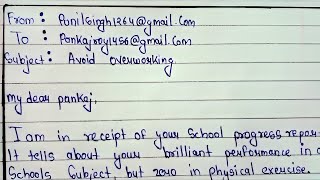 From : Panilsingh1264@gmail.Com
To : Pankajroy1456@gmail.Com
Subject: Avoid overworking
my dear pankaj,
I am in receipt of your School progress repor
It tells about your brilliant performance in a
Schools Subject, but zero in physical exercise.